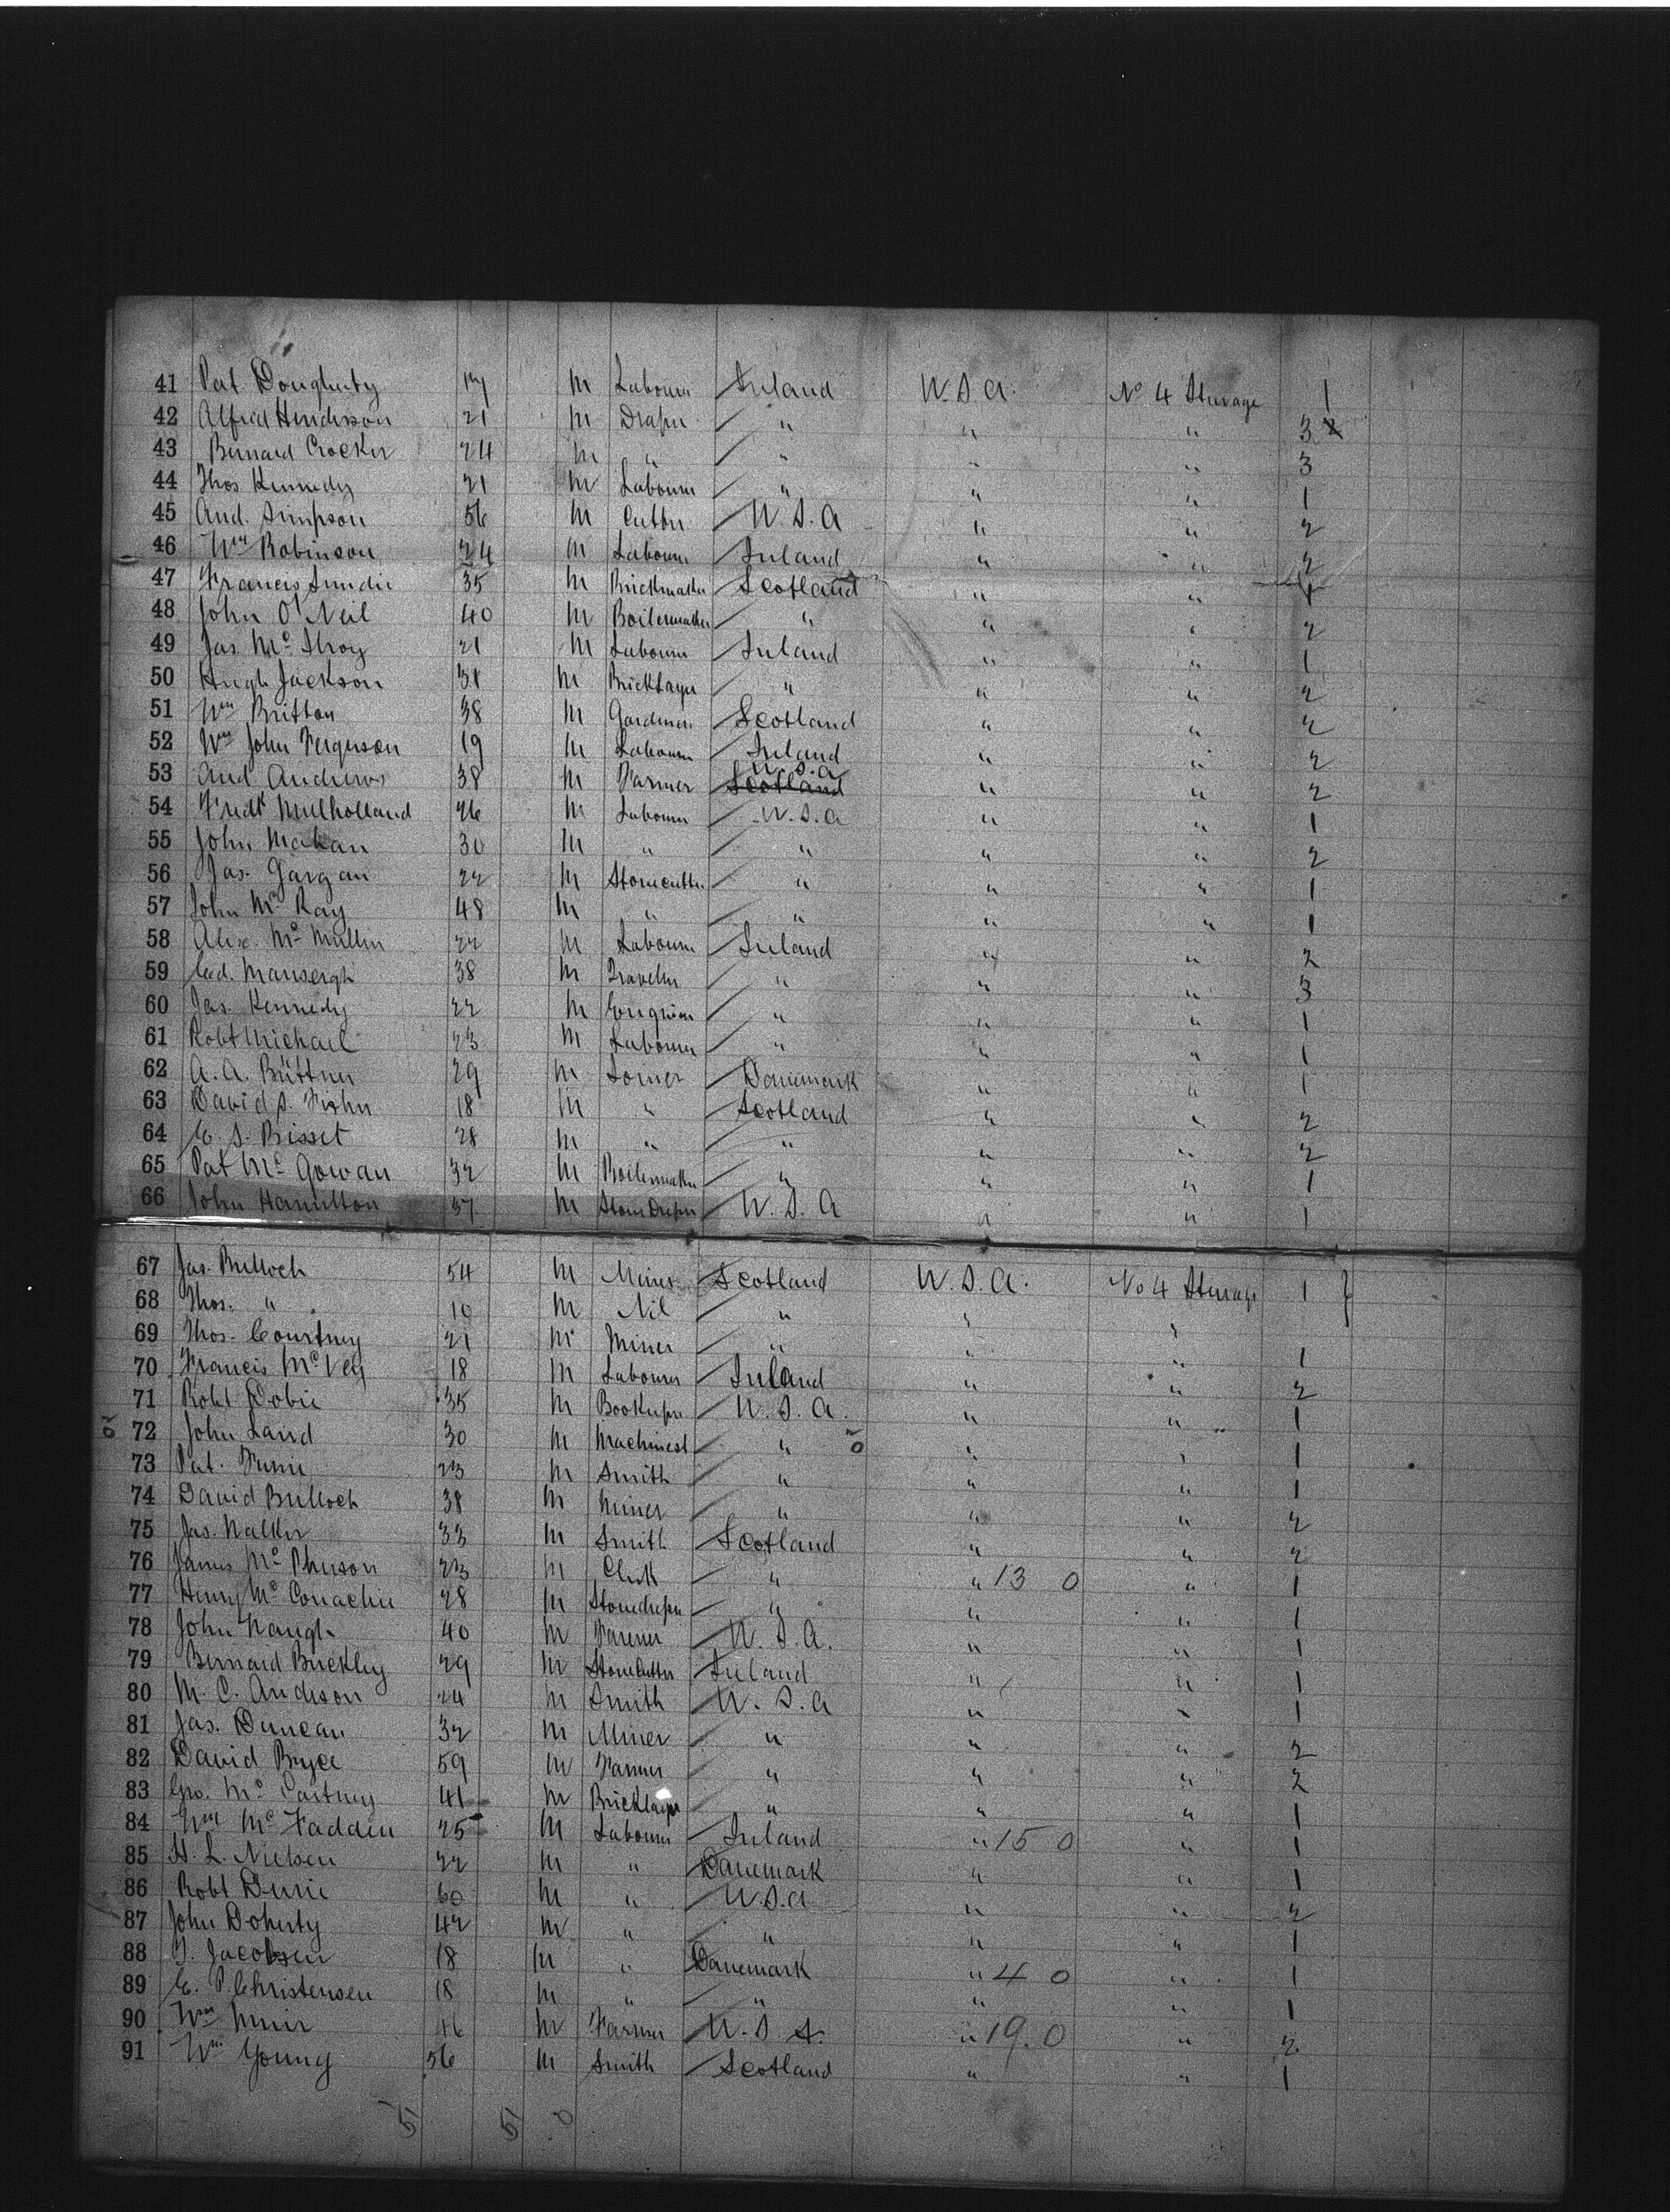 41 Pat Dougherty 17 M Labourer Ireland U.S.A. No 4 Steerage 1
42 Alfred Henderson 21 M Draper " " " 3
43 Bernard Crocker 24 M " " " " 3
44 Thos Kennedy 21 M Labourer " " " 1
45 And. Simpson 56 M Cutter U.S.A " " 2
46 Wm Robinson 24 M Labourer Ireland " " 2
47 Francis 35 M Brickmaker Scotland " " 1
48 John O'Neil 40 M Boilermaker " " " 2
49 Jas Mc Ilroy 21 M Labourer Ireland " " 1
50 Hugh Jackson 31 M Bricklayer " " " 2
51 Wm Britton 38 M Gardener Scotland " " 2
52 Wm John Ferguson 19 M Labourer Ireland " " 2
53 And Andrews 38 M Farmer Scotland U.S.a " " 2
54 Fredk Mulholland 26 M Labourer U.S.a " " 1
55 John Mahan 30 M " " " " 2
56 Jas. Gargan 22 M Stonecutter " " " 1
57 John Mc Kay 48 M " " " " 1
58 Alex. Mc Mullen 22 M Labourer Ireland " " 2
59 Ed. Mansergh 38 M Traveller " " " 3
60 Jas. Kennedy 22 M Engineer " " " 1
61 Robt Michael 23 M Labourer " " " 1
62 A. A. Büttner 29 M Danemark " " 1
63 David S. 18 M " Scotland " " 2
64 E. S. Bisset 28 M " " " " 2
65 Pat Mc Gowan 32 M Boilermaker " " " 1
66 John Hamilton 37 M Stonedresser U.S.A " " 1
67 Jas. Bulloch 54 M Miner Scotland U.S.A. No 4 Steerage 1
68 Thos. " 10 M Nil " " "
69 Thos. Courtney 21 M Miner " " " 1
70 Francis Mc Vey 18 M Labourer Ireland " " 2
71 Robt Dobie 35 M Bookkeeper U.S.A. " " 1
72 John Laird 30 M Machinest " " " 1
73 Pat. 23 M Smith " " " 1
74 David Bulloch 38 M Miner " " " 2
75 Jas. Walker 33 M Smith Scotland " " 2
76 James Mc Pherson 23 M Clerk " " 13 0 " 1
77 Henry Mc Conachie 28 M Stonedresser " " " 1
78 John Waugh 40 M Farmer U.S.A. " " 1
79 Bernard Buckley 29 M StoneCutter Ireland " " 1
80 M. C. Anderson 24 M Smith U.S.a " " 1
81 Jas. Duncan 32 M Miner " " " 2
82 David Bryce 59 M Farmer " " " 2
83 Geo. Mc Cartney 41 M Bricklayer " " " 1
84 Wm Mc Fadden 25 M Labourer Ireland " 15 0 " 1
85 H. L. Nielsen 22 M " Danemark " " 1
86 Robt Durie 60 M " U.S.a " " 2
87 John Doherty 42 M " " " " 1
88 J. Jacobsen 18 M " Danemark " 4 0 " 1
89 E. P. Christensen 18 M " " " " 1
90 Wm Muir 46 M Farmer U.S.A. " 19.0 " 2
91 Wm Young 56 M Smith Scotland " " 1